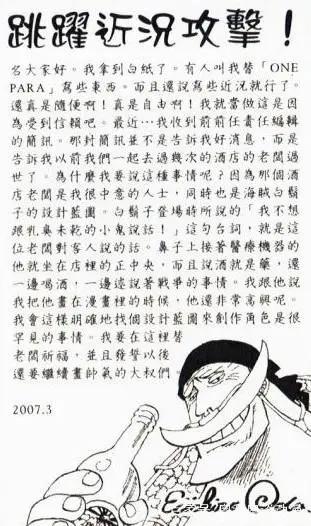 跳躍近況攻擊！
各大家好。我拿到白紙了。有人叫我替「ONE
PARA」寫些東西。而且還說寫些近況就行了。
還真是隨便啊！真是自由啊！我就當做這是因
為受到信賴吧。最近…我收到前前任責任編輯
的簡訊。那封簡訊並不是告訴我好消息，而是
告訴我以前我們一起去過幾次的酒店的老闆過
世了。為什麼我要說這種事情呢？因為那個酒
店老闆是我很中意的人士，同時也是海賊白鬍
子的設計藍圖。白鬍子登場時所說的「我不想
跟乳臭未乾的小鬼說話！」這句台詞，就是這
位老闆對客人說的話。鼻子上接著醫療機器的
他就坐在店裡的正中央，而且說酒就是藥，還
一邊喝酒，一邊述說著戰爭的事情。我跟他說
我把他畫在漫畫裡的時候，他還非常高興呢。
我會這樣明確地找個設計藍圖來創作角色是很
罕見的事情。我要在這裡替
老闆祈福，並且發誓以後
還要繼續畫帥氣的大叔們。
2007.3